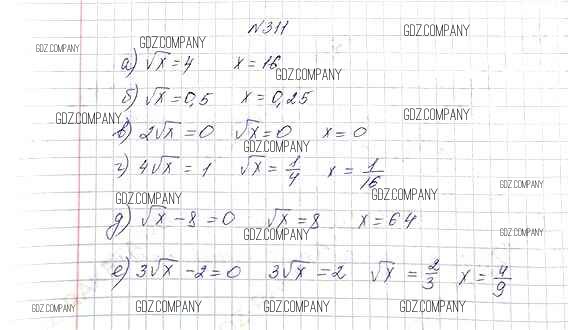 N311
GDZ.COMPANY
GDZ.COMPANY
GDZ.COMPANY
а) √x = 4 x = 16
GDZ.COMPANY
б) √x = 0,5 x = 0,25
GDZ.COMPANY
GDZ.COMPANY
в) 2√x = 0 √x = 0 x = 0
GDZ.COMPANY
г) 4√x = 1 √x = 1/4 x = 1/16
GDZ.COMPANY
GDZ.COMPANY
GDZ.COMPANY
д) √x - 8 = 0 √x = 8 x = 64
GDZ.COMPANY
GDZ.COMPANY
е) 3√x - 2 = 0 3√x = 2 √x = 2/3 x = 4/9
GDZ.COMPANY
GDZ.COMPANY
GDZ.COMPANY
GDZ.COMPANY